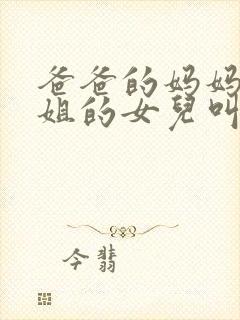 爸爸的妈妈
姐的女兒叫
今翡